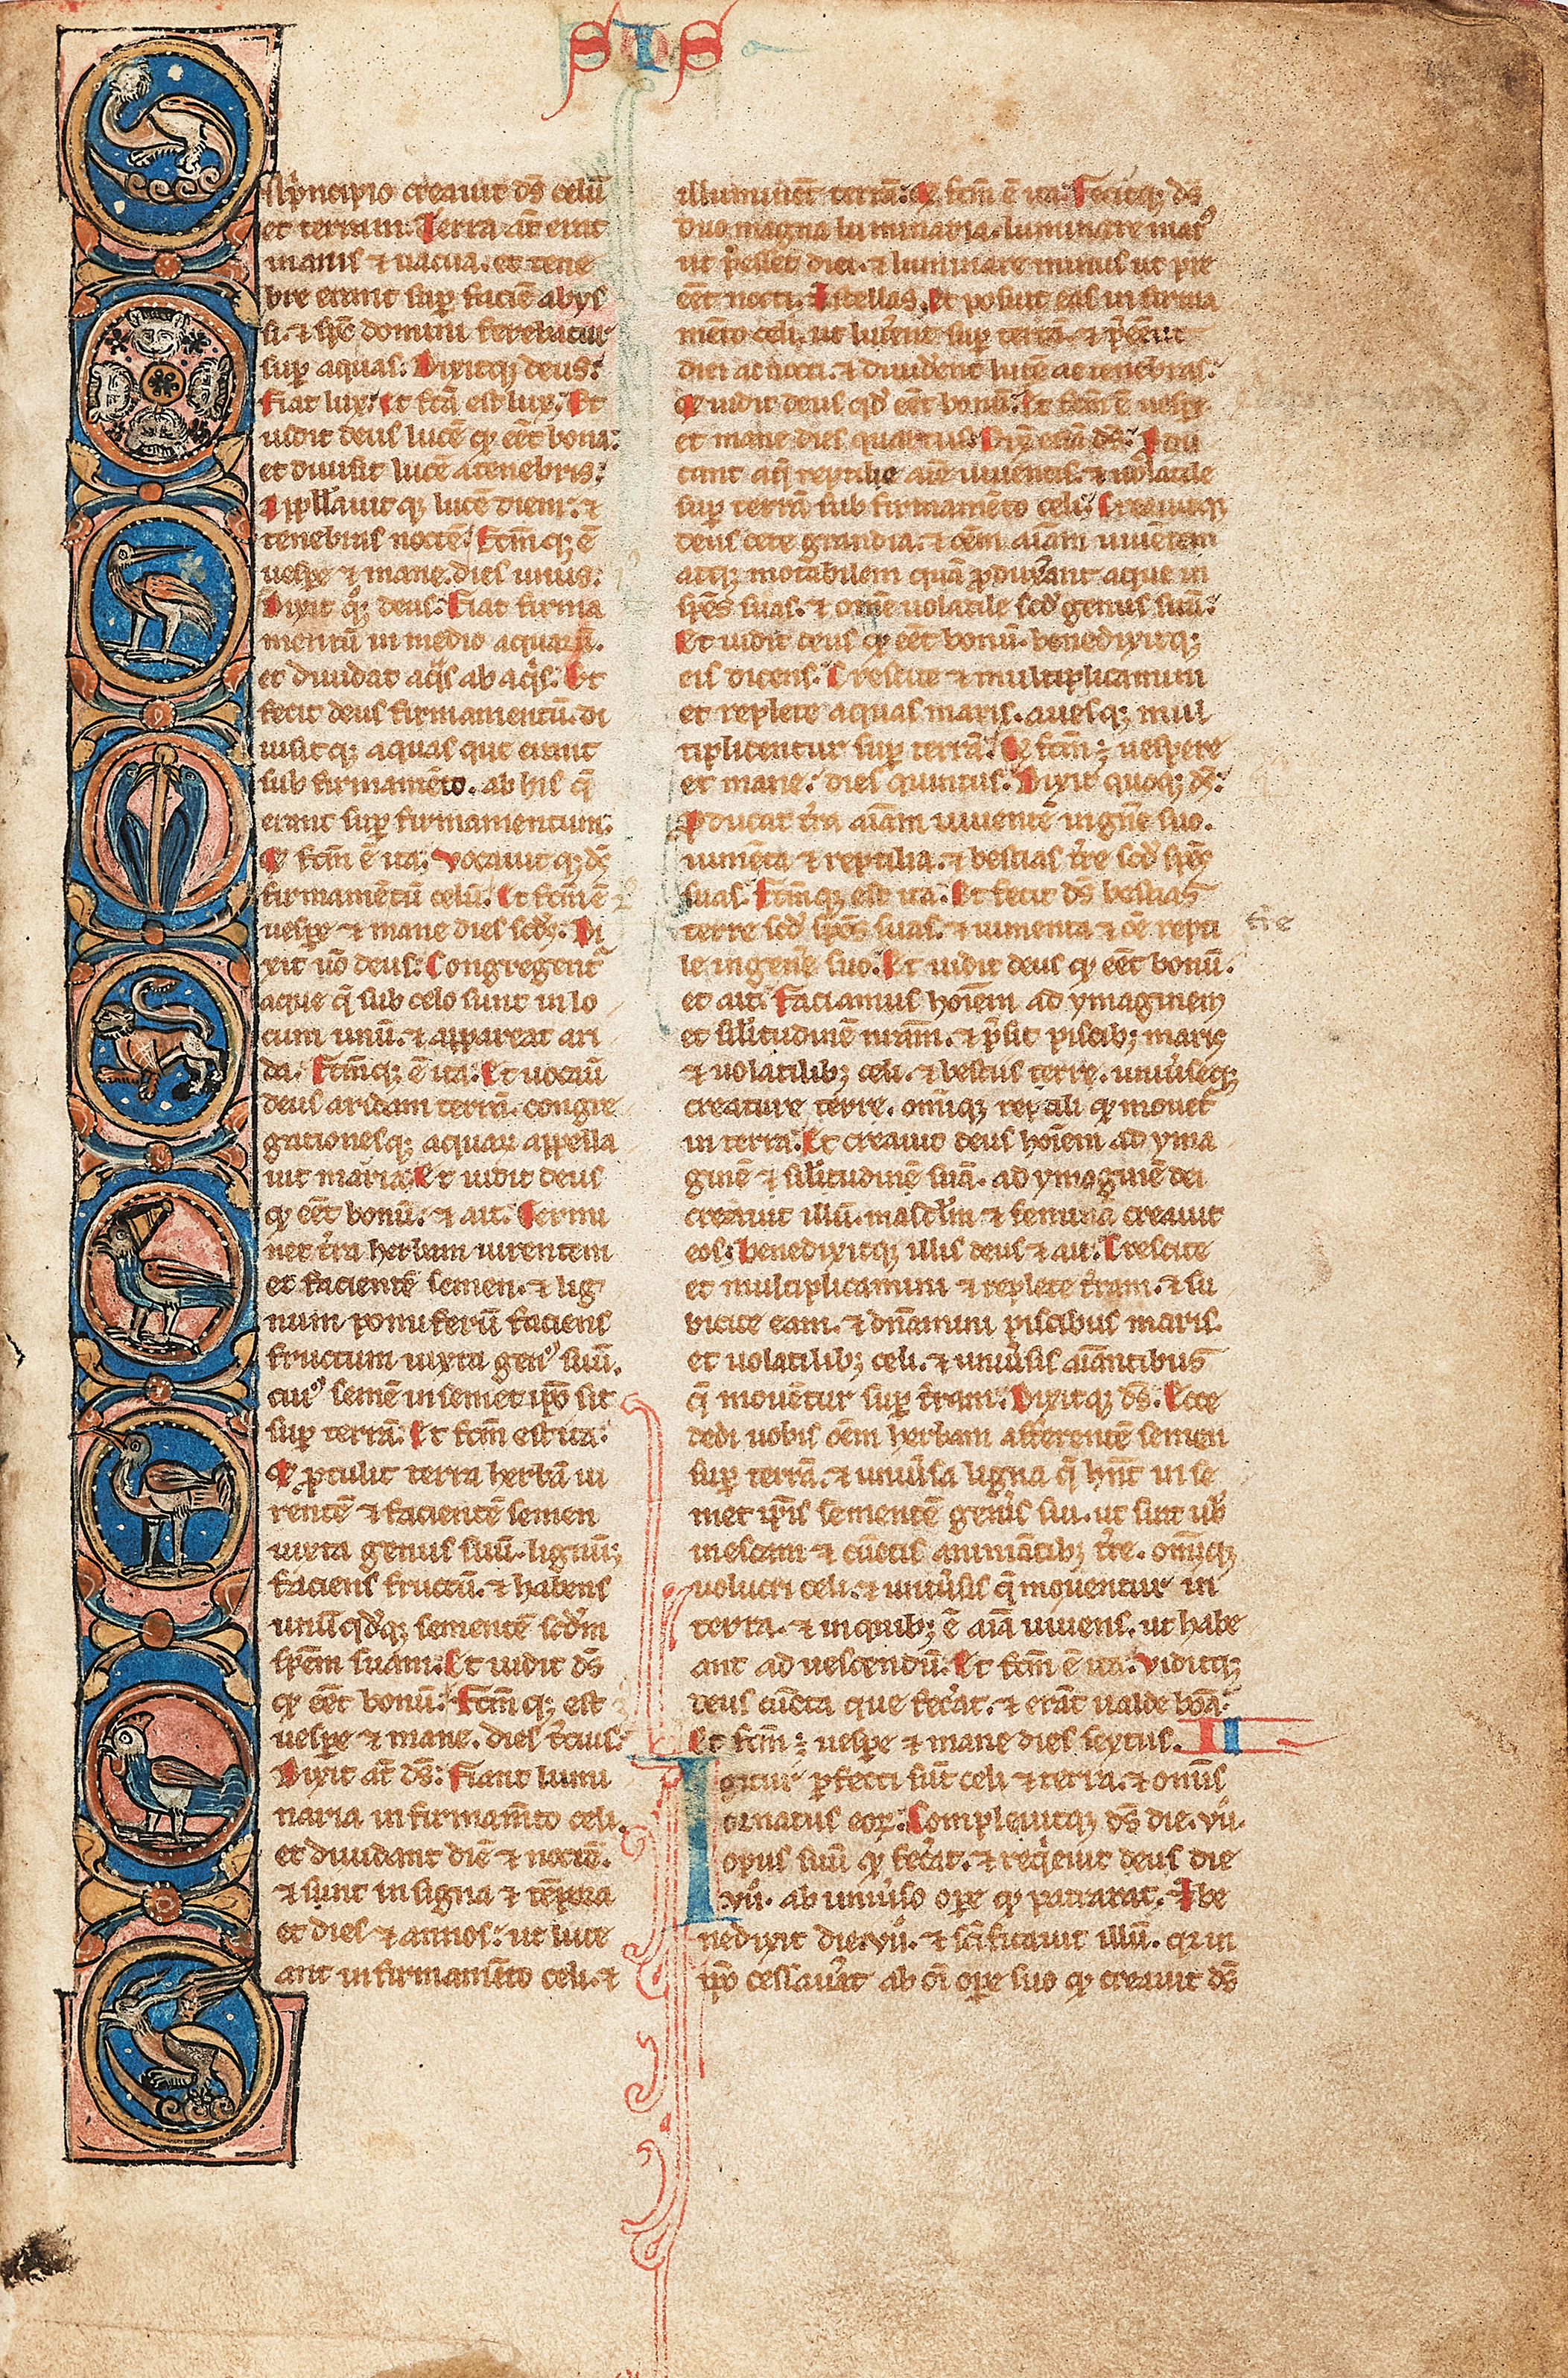 SIS
Nprincipio creauit ds̄ celū
et terram. Terra aūt erat
inanis ⁊ uacua. et tene
bre erant sup̄ faciē abys
si. ⁊ sp̄c domini ferebatur
sup̄ aquas. Dixitq; deus.
Fiat lux. Et fc̄a est lux. Et
uidit deus lucē qͥ eēt bona.
et diuisit lucē a tenebris.
Appllauitq; lucē diem. ⁊
tenebras noctē. Fc̄m q; ē
uesp̄e ⁊ mane. dies unus.
Dixit qͦq; deus. Fiat firma
mentū in medio aquarū.
et diuidat aq̄s ab aq̄s. Et
fecit deus firmamentū. di
uisitq; aquas que erant
sub firmamēto. ab his q̄
erant sup̄ firmamentum.
Et fc̄m ē ita. Vocauit q; ds̄
firmamētū celū. Et fc̄m ē
uesp̄e ⁊ mane dies scd̄s. Di
xit uͦ deus. Congregent᷑
aque q̄ sub celo sunt in lo
cum unū. ⁊ appareat ari
da. Fc̄mq; ē ita. Et uocauͥ
deus aridam terrā. congre
gationesq; aquaꝝ appella
uit maria. Et uidit deus
qͥ eēt bonū. ⁊ ait. Germi
net t̄ra herbam uirentem
et facientē semen. ⁊ lig
num pomiferū faciens
fructum iuxta genꝰ suū.
cuiꝰ semē in semet ip̄o sit
sup̄ terrā. Et fc̄m est ita.
Et ꝓtulit terra herbā ui
rentē ⁊ facientē semen
iuxta genus suū. lignūq;
faciens fructū. ⁊ habens
unūqdq; sementē scd̄m
sp̄em suam. Et uidit ds̄
qͥ eēt bonū. Fc̄m q; est
uesp̄e ⁊ mane. dies t̄cius.
Dixit aūt ds̄. Fiant lumi
naria in firmam̄to celi.
et diuidant diē ⁊ noctē.
⁊ sint in signa ⁊ tēpora
et dies ⁊ annos. ut luce
ant in firmam̄to celi. ⁊
illuminēt terrā. Et fc̄m ē ita. Fecitq; ds̄
duo magna luminaria. luminare maiꝰ
ut p̄esset diei. ⁊ luminare minus ut pre
eēt nocti. ⁊ stellas. Et posuit eas in firma
mēto celi. ut lucerēt sup̄ terrā. ⁊ p̄eēnt
diei ac nocti. ⁊ diuiderēt lucē ac tenebras.
Et uidit deus qd̄ eēt bonū. Et fc̄m ē uesp̄e
et mane dies quartus. Dix̄ etiā ds̄. Produ
cant aq̄ reptile aīe uiuentis. ⁊ uolatile
sup̄ terrā sub firmamēto celi. Creauitq;
deus cete grandia. ⁊ oēm aīam uiuētem
atq; motabilem quā ꝓduxerant aque in
sp̄es suas. ⁊ omē uolatile scd̄ genus suū.
Et uidit deus qͥ eēt bonū. benedixitq;
eis dicens. Crescite ⁊ multiplicamini
et replete aquas maris. auesq; mul
tiplicentur sup̄ terrā. Et fc̄m ē uespere
et mane. dies quintus. Dixit quoq; ds̄.
Producat t̄ra aīam uiuentē in gn̄e suo.
iumēta ⁊ reptilia. ⁊ bestias t̄re scd̄ sp̄es
suas. Fc̄mq; est ita. Et fecit ds̄ bestias
terre scd̄ sp̄es suas. ⁊ iumenta ⁊ oē repti
t̄re
le in gen̄e suo. Et uidit deus qͥ eēt bonū.
et ait. Faciamus hoīem ad ymaginem
et sil̄itudinē nr̄am. ⁊ p̄sit piscib; maris
⁊ uolatilib; celi. ⁊ bestiis terre. uniūseq;
creature terre. omīq; reptili qͥ mouet᷑
in terra. Et creauit deus hoīem ad yma
ginē ⁊ sil̄itudinē suā. ad ymaginē dei
creauit illū. mascl̄m ⁊ femina creauit
eos. Benedixitq; illis deus ⁊ ait. Crescite
et multiplicamini ⁊ replete t̄ram. ⁊ su
bicite eam. ⁊ dn̄amini piscibus maris.
et uolatilib; celi. ⁊ uniūsis aīantibus
q̄ mouētur sup̄ t̄ram. Dixitq; ds̄. Ecce
dedi uobis oēm herbam afferentē semen
sup̄ terrā. ⁊ uniūsa ligna q̄ hn̄t in se
met ip̄is sementē gen̄is sui. ut sint uob̄
in escam ⁊ cūctis animātib; t̄re. omīq;
uolucri celi. ⁊ uniūsis q̄ mouentur in
terra. ⁊ in quib; ē aīa uiuens. ut habe
ant ad uescendū. Et fc̄m ē ita. Viditq;
deus cuncta que fec̄at. ⁊ erāt ualde bōa.
Et fc̄m ē uesp̄e ⁊ mane dies sextus. II
Igitur ꝑfecti sūt celi ⁊ terra. ⁊ omīs
ornatus eoꝝ. Compleuitq; ds̄ die. vii.
opus suū qͥ fec̄at. ⁊ req̄euit deus die
.vii. ab uniūso op̄e qͥ patrarat. ⁊ be
nedixit die. vii. ⁊ sc̄ificauit illū. q̄ in
ip̄o cessau̓at ab oī op̄e suo qͥ creauit ds̄